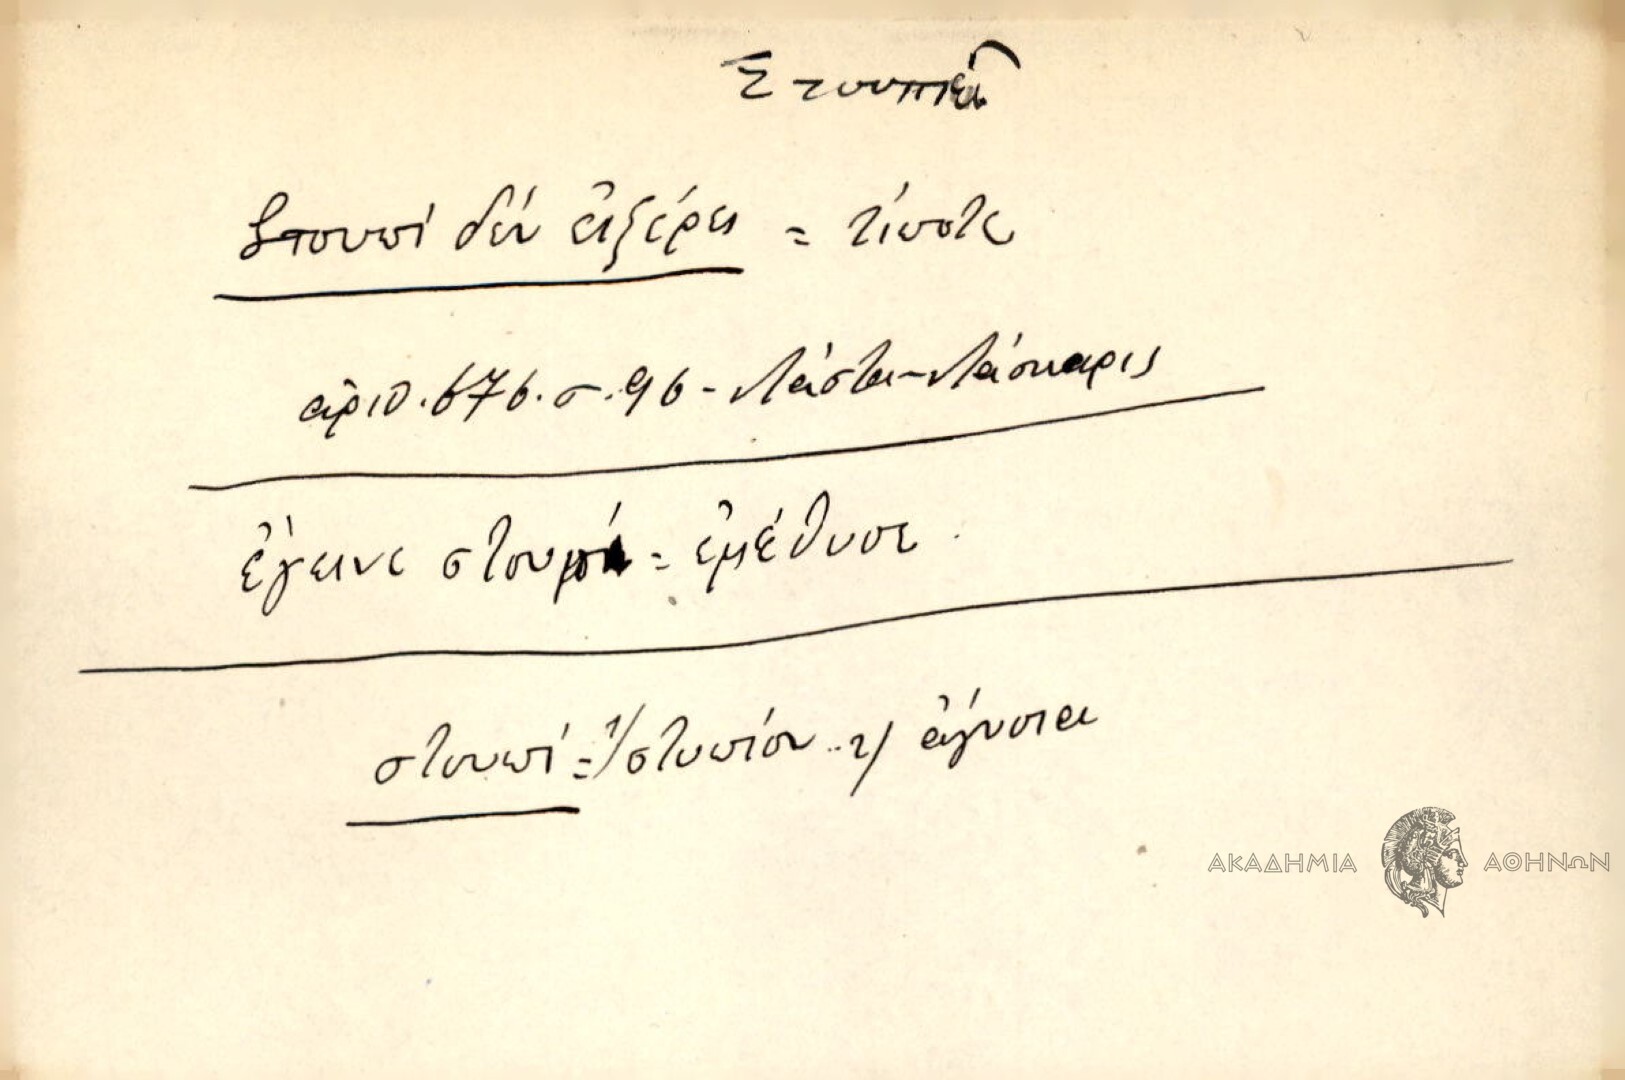 Στουπὶ
Στουπὶ δὲν εἰξέρει = τίποτε
ἀριθ. 676. σ. 96 - Λάστα - Λάσκαρις
ἔγεινε στουπὶ = ἐμέθυσε
στουπί = 1/ στυπίον .. 2/
ΑΚΑΔΗΜΙΑ ΑΘΗΝΩΝ